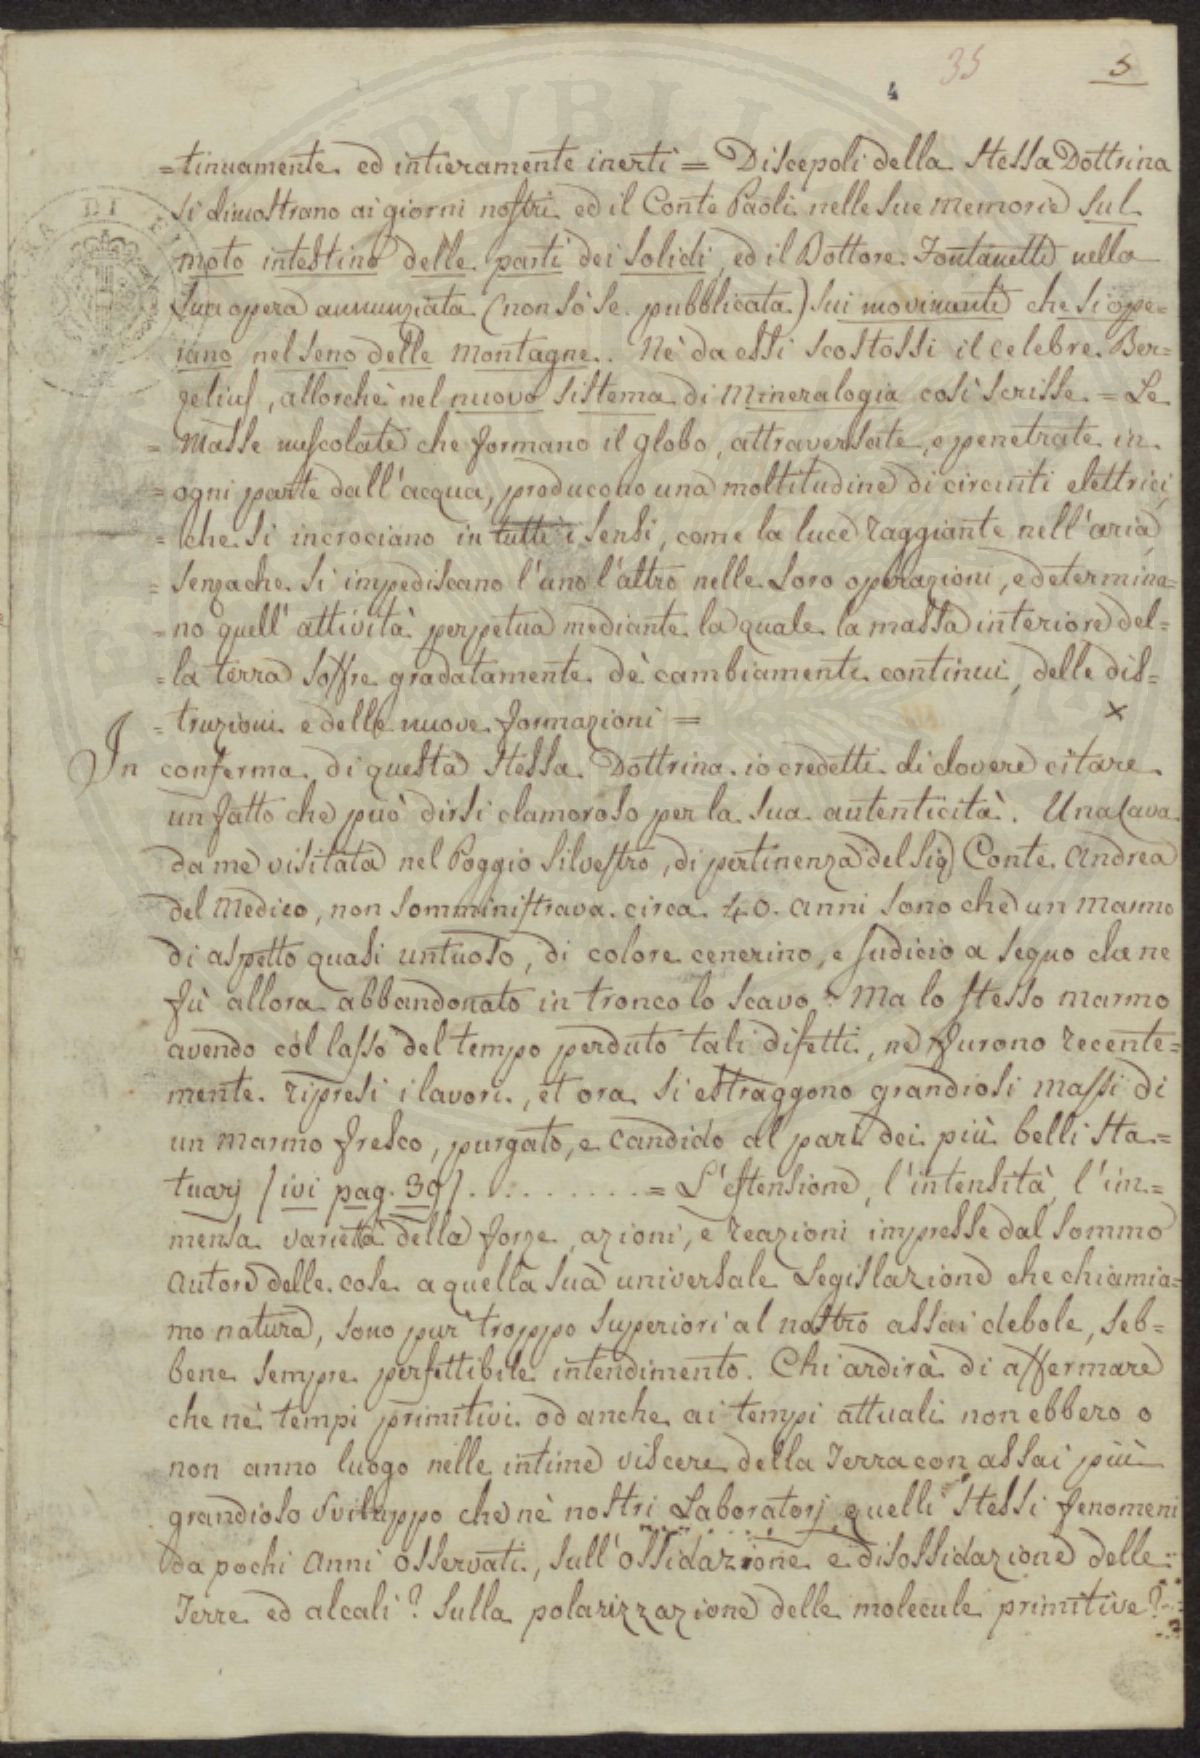 35
5
4
=tinuamente ed intieramente inerti = Discepoli della stessa Dottrina
si dimostrano ai giorni nostri ed il Conte Paoli nelle sue memorie sul
moto intestino delle parti dei solidi, ed il Dottore Fontanetti nella
sua opera annunziata (non sò se pubblicata) sui movimenti che si ope=
rano nel seno delle montagne. Nè da essi scostossi il celebre Ber=
zelius, allorchè nel nuovo sistema di Mineralogia così scrisse = Le
= Masse mescolate che formano il globo, attraversate, e penetrate in
= ogni parte dall'acqua, producono una moltitudine di circuiti elettrici,
= che si incrociano in tutti i sensi, come la luce raggiante nell'aria,
= senzache si impediscano l'uno l'altro nelle loro operazioni, e determina=
= no quell'attività perpetua mediante la quale la massa interiore del=
= la terra soffre gradatamente de' cambiamenti continui, delle dis=
= truzioni e delle nuove formazioni = ×
In conferma di questa stessa Dottrina io credetti di dovere citare
un fatto che può dirsi clamoroso per la sua autenticità. Una Cava
da me visitata nel Poggio Silvestro, di pertinenza del Sig Conte Andrea
del Medico, non somministrava circa 40. anni sono che un marmo
di aspetto quasi untuoso, di colore cenerino, e sudicio a segno che ne
fù allora abbandonato in tronco lo scavo. Ma lo stesso marmo
avendo col lasso del tempo perduto tali difetti, ne furono recente=
mente ripresi i lavori, et ora si estraggono grandiosi massi di
un marmo fresco, purgato, e candido al pari dei più belli sta=
tuarj (ivi pag. 39) . . . . . . . . . = L'estensione, l'intensità, l'im=
mensa varietà delle forze, azioni, e reazioni impresse dal sommo
Autore delle cose a quella sua universale Legislazione che chiamia=
mo natura, sono pur troppo superiori al nostro assai debole, seb=
bene sempre perfettibile intendimento. Chi ardirà di affermare
che nè tempi primitivi od anche ai tempi attuali non ebbero o
non anno luogo nelle intime viscere della Terra con assai più
grandioso sviluppo che nè nostri Laboratorj quelli stessi fenomeni
da pochi anni osservati, sull'ossidazione e disossidazione delle
Terre ed alcali? sulla polarizzazione delle molecule primitive?